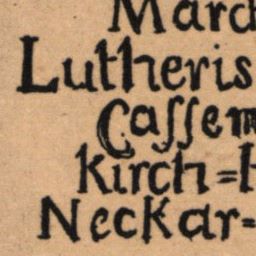 Mard
Lutheris
Cassem
Kirch=
Neckar=